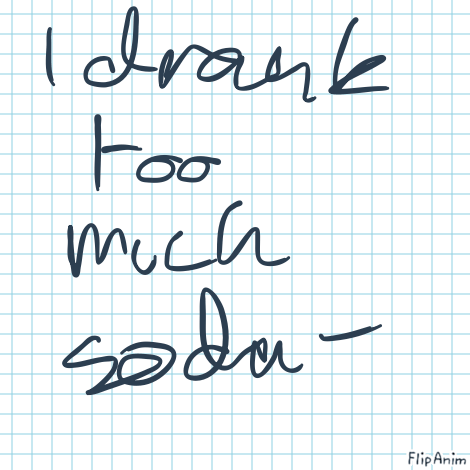 I drank
too
much
soda -
FlipAnim